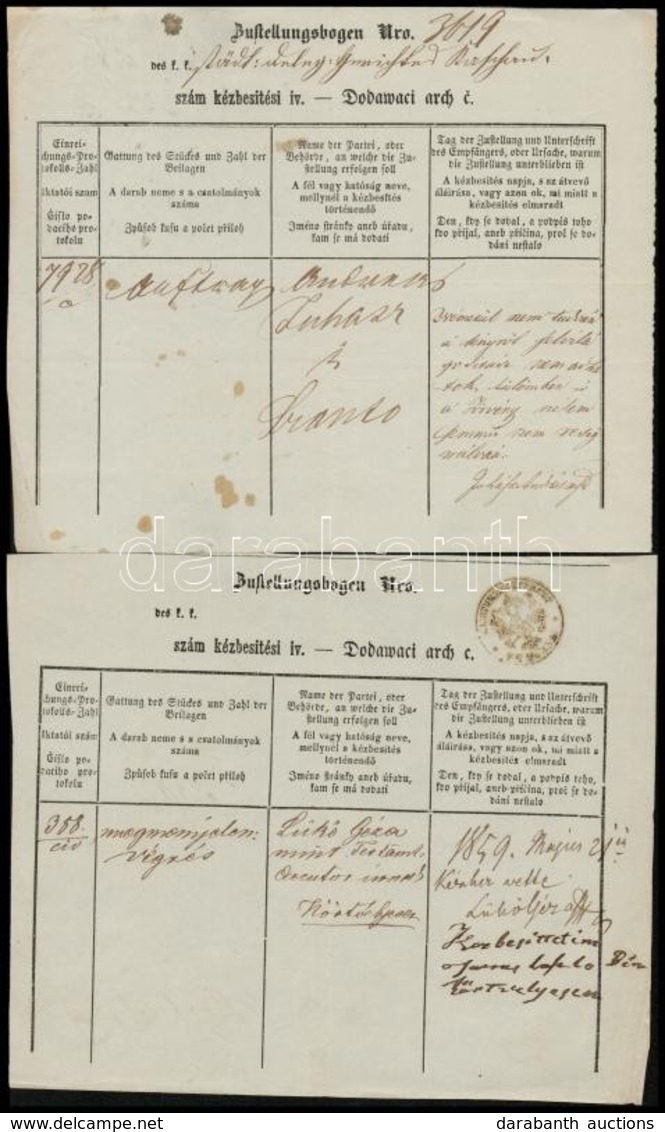 Zustellungsbogen Nro. 3619
des k. k. städt: deleg: Gerichtes Kaschau.
szám kézbesitési iv. — Dodawaci arch č.
Einrei-
chungs-Pro-
tokolls-Zahl
Iktatói szám
Čislo po-
daciho pro-
tokolu
Gattung des Stückes und Zahl der
Beilagen
A darab neme s a csatolmányok
száma
Způsob kusu a počet přiloh
Name der Partei, oder
Behörde, an welche die Zu-
stellung erfolgen soll
A fél vagy hatóság neve,
mellynél a kézbesités
történendő
Jméno stránky aneb úřadu,
kam se má dodati
Tag der Zustellung und Unterschrift
des Empfängers, oder Ursache, warum
die Zustellung unterblieben ist
A kézbesités napja, s az átvevő
áláirása, vagy azon ok, mi miatt a
kézbesités elmaradt
Den, kdy se dodal, a podpis toho
kdo přijal, aneb přičina, proč se do-
dáni nestalo
7928
Auftrag
Andreas
Juhasz
Szanto
nem
a
nem
a Törvény
nem
darabanth
auctions
Zustellungsbogen Nro.
des k. k.
szám kézbesitési iv. — Dodawaci arch c.
Einrei-
chungs-Pro-
tokolls-Zahl
Iktatói szám
Čislo po-
daciho pro-
tokolu
Gattung des Stückes und Zahl der
Beilagen
A darab neme s a csatolmányok
száma
Způsob kusu a počet přiloh
Name der Partei, oder
Behörde, an welche die Zu-
stellung erfolgen soll
A fél vagy hatóság neve,
mellynél a kézbesités
történendő
Jméno stránky aneb úřadu,
kam se má dodati
Tag der Zustellung und Unterschrift
des Empfängers, oder Ursache, warum
die Zustellung unterblieben ist
A kézbesités napja, s az átvevő
áláirása, vagy azon ok, mi miatt a
kézbesités elmaradt
Den, kdy se dodal, a podpis toho,
kdo přijal, aneb přičina, proč se do-
dáni nestalo
358
civ
Lükő Géza
mint
1859. Majus 21
Kézhez vette
Lükő Géza
Kezbesittetem
darabanth auctions